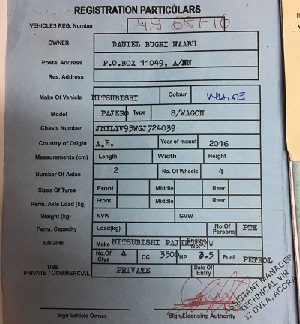 REGISTRATION PARTICULARS
VEHICLES REG. Number
OWNER DANIEL BUGRI NAABU
Postal Address P.O.BOX 11049, A/NN
Res. Address
Make Of Vehicle MITSUBISHI Colour
Model PAJERO Type S/WAGON
Chassis Number
Country of Origin Year of manuf 2016
Measurements (cm) Length Width Height
Number Of Axles 2 No. Of Wheels 4
Sizes Of Tyres Front Middle Rear
Perm. Axle Load (kg) Front Middle Rear
Weight (kg) NVW GVW
Perm. Capacity Load(kg) No Of Persons
ENGINE Make MITSUBISHI
No. Of 4 CC 3500 HP 3.5 Fuel PETROL
USE
PRIVATE / COMMERCIAL PRIVATE Date Of Entry
Sign Vehicle Owner Sign Licensing Authority